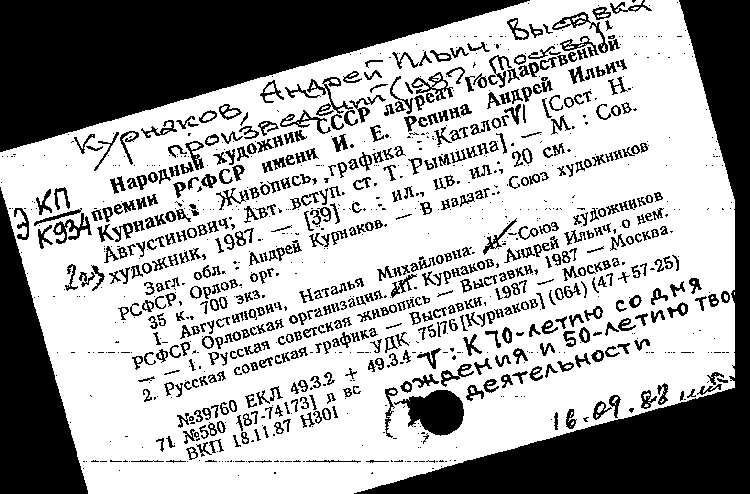 Курнаков, Андрей Ильич. Выставка
произведений (1987; Москва)
Народный художник СССР лауреат Государственной
премии РСФСР имени И. Е. Репина Андрей Ильич
Курнаков: Живопись, графика : Каталог / [Сост. Н.
Августинович; Авт. вступ. ст. Т. Рымшина]. — М. : Сов.
художник, 1987. — [39] с. : ил., цв. ил.; 20 см.
Загл. обл. : Андрей Курнаков. — В надзаг.: Союз художников
РСФСР, Орлов. орг.
35 к., 700 экз.
1. Августинович, Наталья Михайловна. II. Союз художников
РСФСР. Орловская организация. III. Курнаков, Андрей Ильич, о нем.
— — 1. Русская советская живопись — Выставки, 1987 — Москва.
2. Русская советская графика — Выставки, 1987 — Москва.
УДК 75/76 [Курнаков] (064) (47+57-25)
№39760 ЕКЛ 49.3.2 + 49.3.4
71 №580 [87-74173] п вс
ВКП 18.11.87 Н301
Э КП
К934
2 экз
V: К 70-летию со дня
рождения и 50-летию твор
деятельности
16.09.88